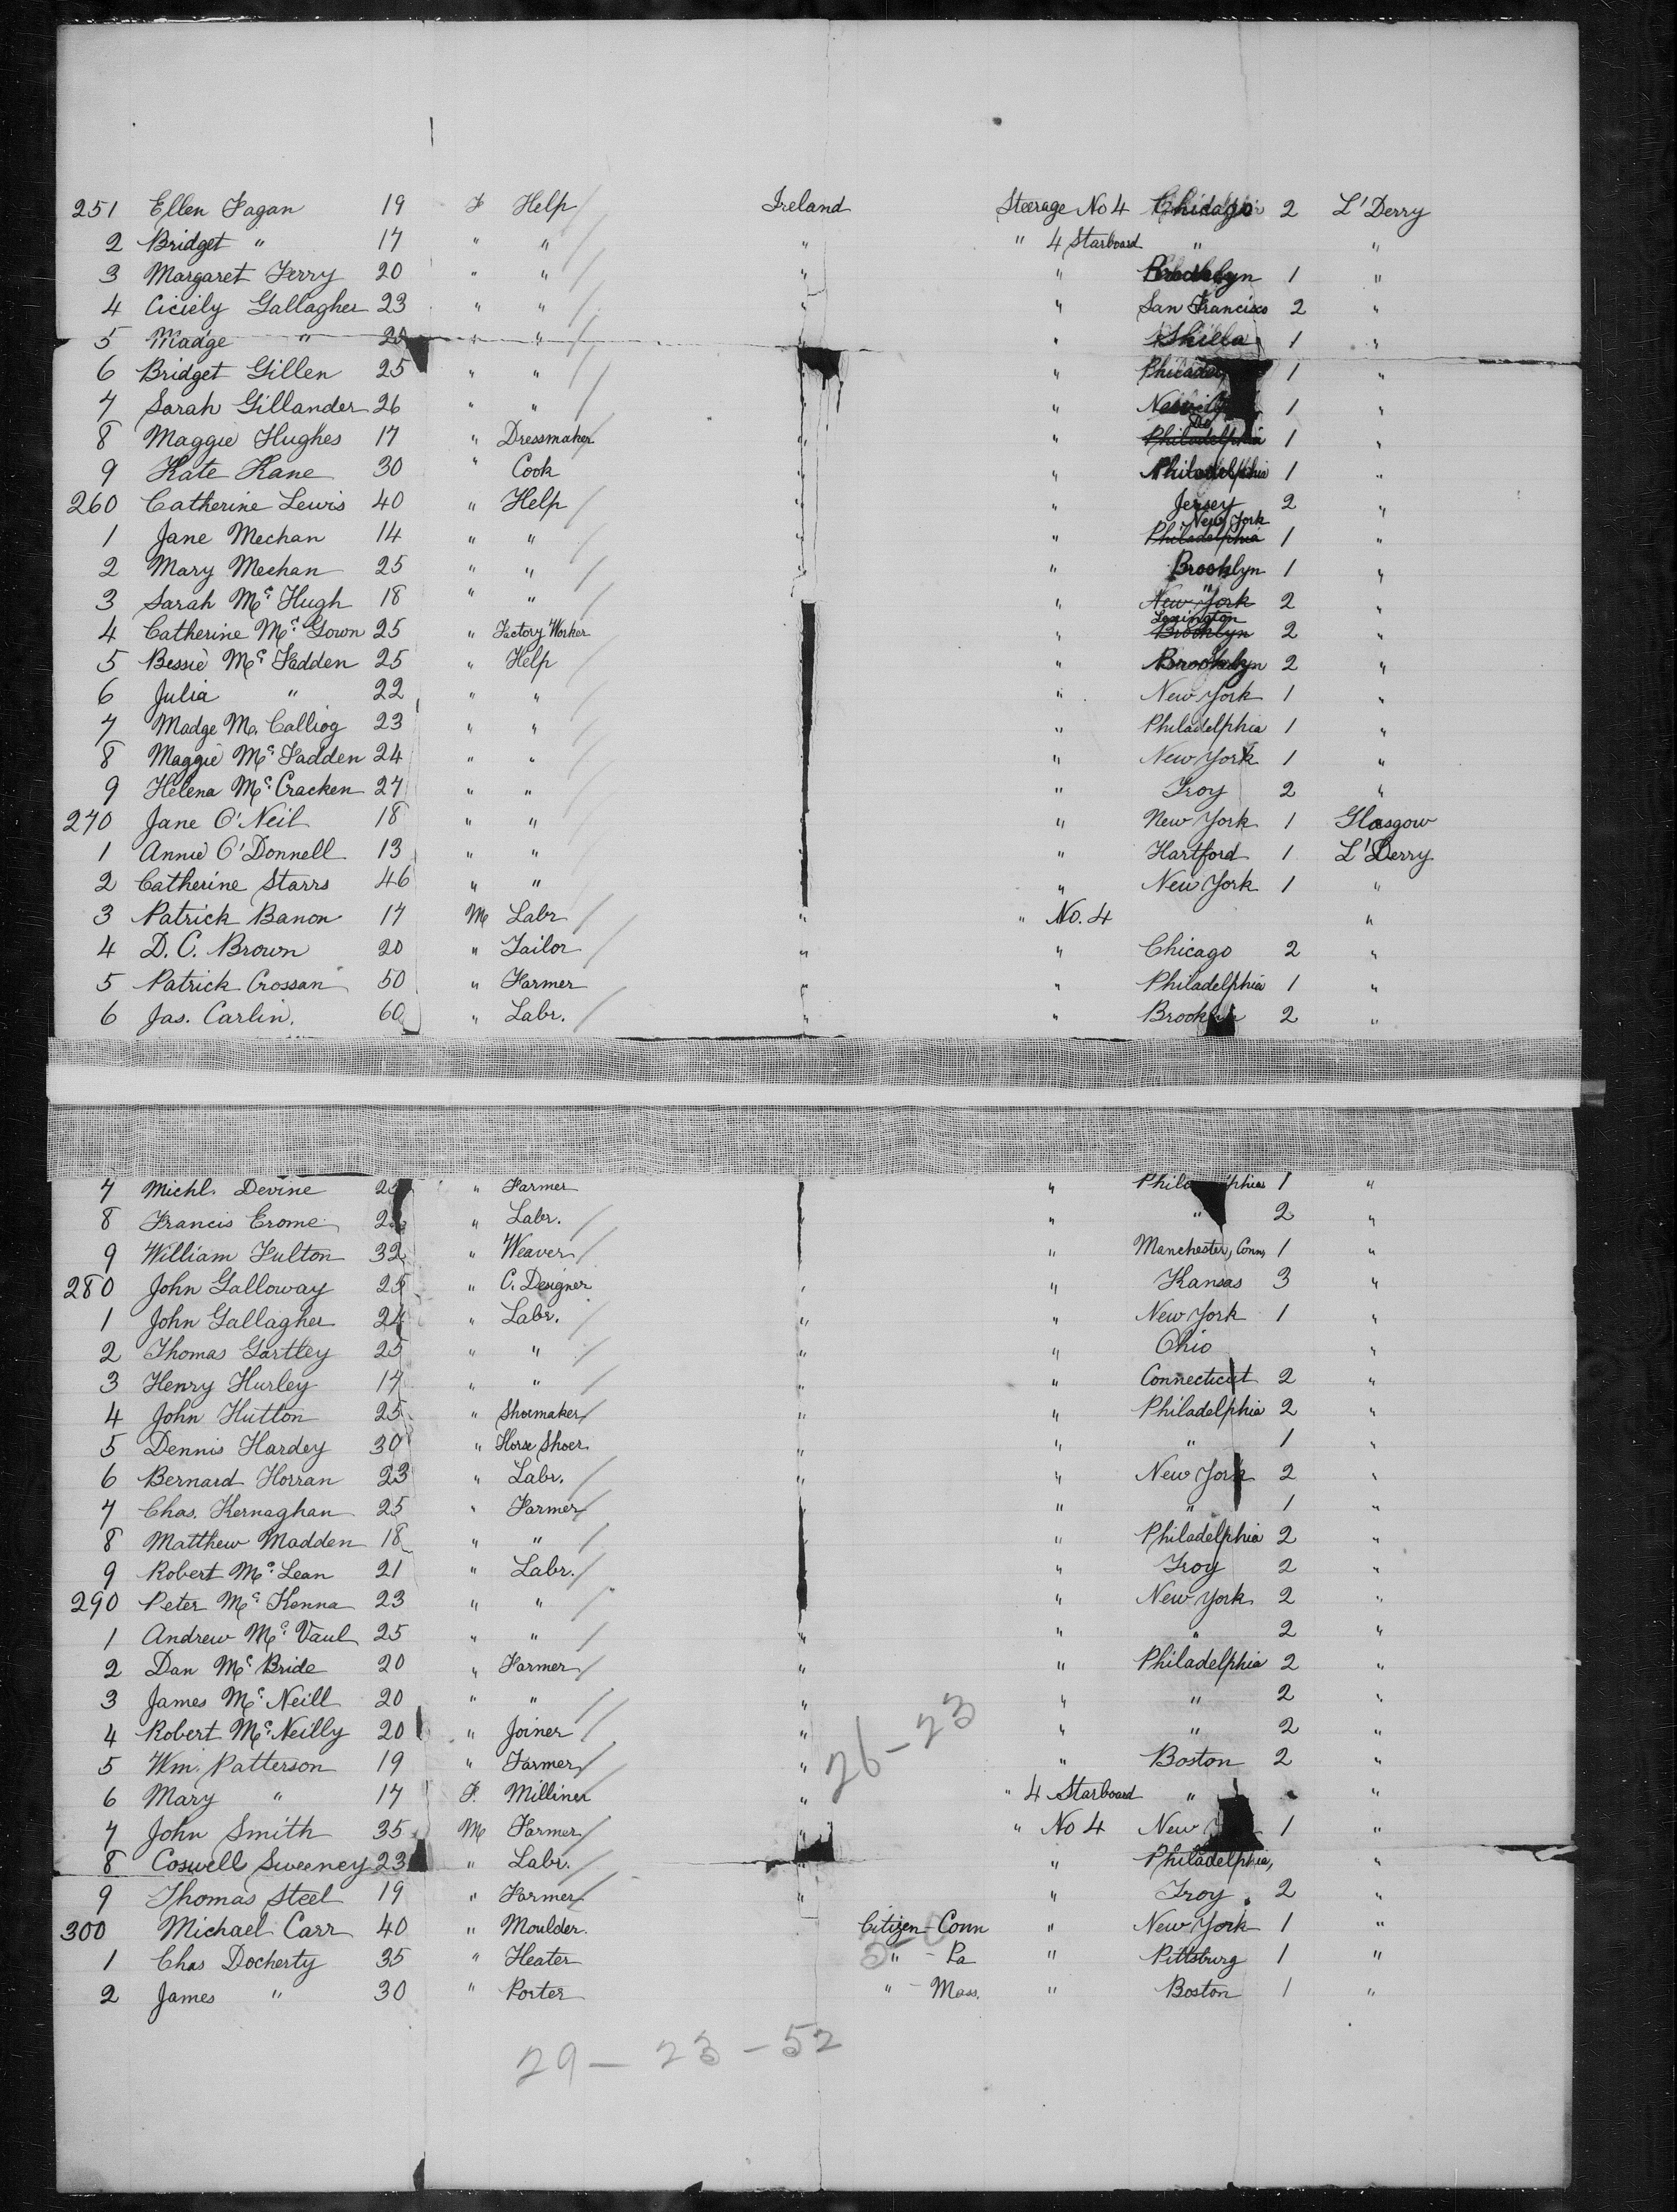 251 Ellen Fagan 19 F Help / Ireland Steerage No 4 Chicago 2 L'Derry
2 Bridget " 17 " " / " " 4 Starboard " "
3 Margaret Ferry 20 " " / " " Brooklyn 1 "
4 Ciciely Gallagher 23 " " / " " San Francisco 2 "
5 Madge " 20 " " / " " Philla 1 "
6 Bridget Gillen 25 " " / " 1 "
7 Sarah Gillander 26 " " / " " 1 "
8 Maggie Hughes 17 " Dressmaker " " Do Philadelphia 1 "
9 Kate Kane 30 " Cook " " Philadelphia 1 "
260 Catherine Lewis 40 " Help / " " Jersey 2 "
1 Jane Mechan 14 " " / " " New York Philadelphia 1 "
2 Mary Mechan 25 " " / " " Brooklyn 1 "
3 Sarah McHugh 18 " " / " " New York 2 "
4 Catherine McGown 25 " Factory Worker " Lexington Brooklyn 2 "
5 Bessie McFadden 25 " Help / " Brooklyn 2 "
6 Julia " 22 " " / " New York 1 "
7 Madge M. Calliog 23 " " / " Philadelphia 1 "
8 Maggie McFadden 24 " " / " New York 1 "
9 Helena McCracken 27 " " / " Troy 2 "
270 Jane O'Neil 18 " " / " New York 1 Glasgow
1 Annie O'Donnell 13 " " " Hartford 1 L'Derry
2 Catherine Starrs 46 " " " New York 1 "
3 Patrick Banon 17 M Labr / " " No. 4 "
4 D. C. Brown 20 " Tailor / " " Chicago 2 "
5 Patrick Crossan 50 " Farmer " " Philadelphia 1 "
6 Jas. Carlin. 60 " Labr. / " " Brooklyn 2 "
7 Michl. Devine " Farmer " Philadelphia 1 "
8 Francis Erome " Labr. / " " 2 "
9 William Fulton 32 " Weaver / " Manchester, Conn, 1 "
280 John Galloway 25 " C. Designer " Kansas 3 "
1 John Gallagher 24 " Labr. / " " New York 1 "
2 Thomas Gartley 25 " " / " " Ohio "
3 Henry Hurley 17 " " / " " Connecticut 2 "
4 John Hutton 25 " Shoemaker / " " Philadelphia 2 "
5 Dennis Hardey 30 " Horse Shoer " " " 1 "
6 Bernard Horran 23 " Labr. / " " New York 2 "
7 Chas. Kernaghan 25 " Farmer / " " " 1 "
8 Matthew Madden 18 " " / " Philadelphia 2 "
9 Robert McLean 21 " Labr. / " Troy 2 "
290 Peter McKenna 23 " " / " New York 2 "
1 Andrew McVaul 25 " " / " " " 2 "
2 Dan McBride 20 " Farmer / " " Philadelphia 2 "
3 James McNeill 20 " " / " " " 2 "
4 Robert McNeilly 20 " Joiner / " " " 2 "
26-23
5 Wm. Patterson 19 " Farmer / " " Boston 2 "
6 Mary " 17 F. Milliner " " 4 Starboard " "
7 John Smith 35 M Farmer / " " No 4 New 1 "
8 Coswell Sweeney 23 " Labr. / " Philadelphia, "
9 Thomas Steel 19 " Farmer / " " Troy 2 "
300 Michael Carr 40 " Moulder. Citizen - Conn " New York 1 "
1 Chas Docherty 35 " Heater " - Pa " Pittsburg 1 "
2 James " 30 " Porter " - Mass. " Boston 1 "
29 - 23 - 52